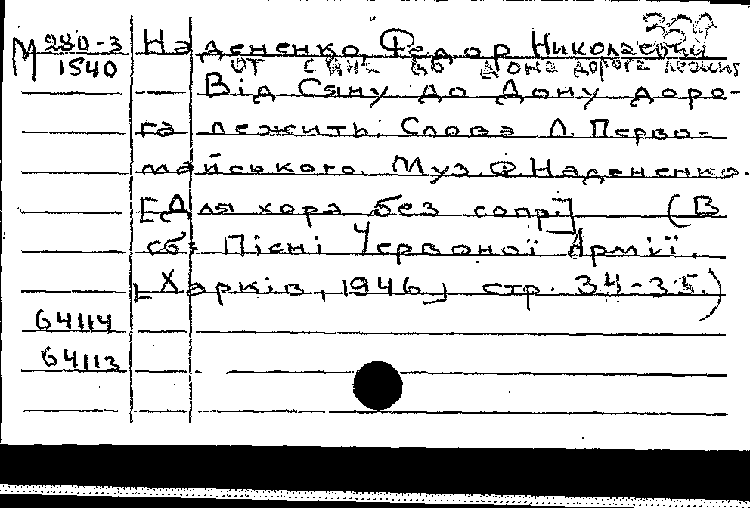 359
М 280-3
1540
Надененко, Федор Николаевич
от Сяна до Дона дорога лежит
Від Сяну до Дону доро-
га лежить. Слова Л. Перво-
майського. Муз. Ф. Надененко.
[Для хора без сопр.] (В
сб: Пісні Червоної Армії.
[Харків, 1946] стр. 34-35.)
64114
64113